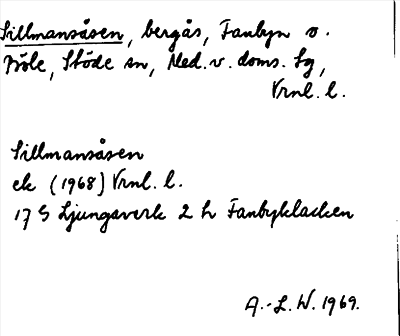 Sillmansåsen, bergås, Fanbyn o.
Pröle, Stöde sn, Med. v. doms. sg,
Vrnl. l.
Sillmansåsen
ek (1968) Vrnl. l.
17 G Ljungaverk 2 h Fanbyklacken
A.-L. W. 1969.